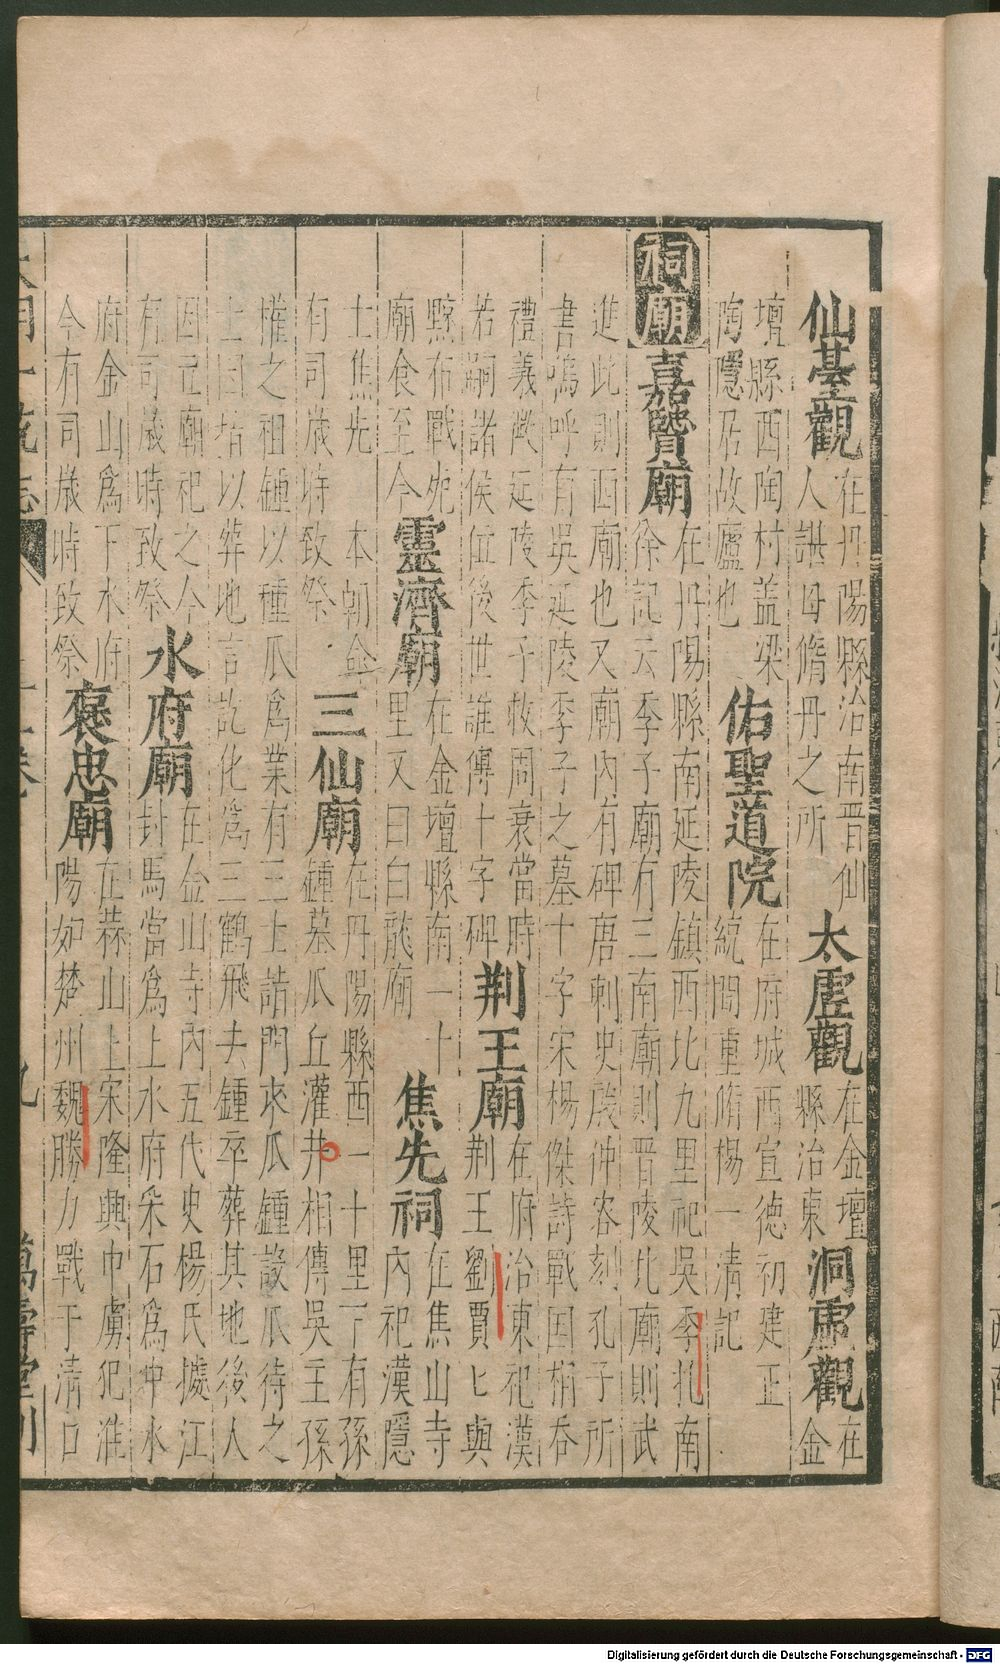 仙臺觀
在丹陽縣治南晉仙
人諶母脩丹之所
太虛觀
在金壇
縣治東
洞虛觀
在
金
壇縣西陶村蓋梁
陶隱居故廬也
佑聖道院
在府城西宣德初建正
統間重脩楊一清記
祠廟
嘉賢廟
在丹陽縣南延陵鎮西北九里祀吳季札南
徐記云季子廟有三南廟則晉陵北廟則武
進此則西廟也又廟內有碑唐刺史殷仲容刻孔子所
書嗚呼有吳延陵季子之墓十字宋楊傑詩戰国相吞
禮義微延陵季子救周衰當時
若嗣諸侯位後世誰傳十字碑
荆王廟
在府治東祀漢
荆王劉賈匕與
黥布戰死
廟食至今
靈濟廟
在金壇縣南一十
里又曰白龍廟
焦先祠
在焦山寺
內祀漢隱
士焦先 本朝命
有司歲時致祭
三仙廟
在丹陽縣西一十里下有孫
鍾墓瓜丘灌井相傳吳主孫
權之祖鍾以種瓜爲業有三士詣門求瓜鍾設瓜待之
士因指以葬地言訖化爲三鶴飛去鍾卒葬其地後人
因立廟祀之今
有司歲時致祭
水府廟
在金山寺內五代史楊氏據江
封馬當爲上水府采石爲中水
府金山爲下水府
今有司歲時致祭
褒忠廟
在蒜山上宋隆興中虜犯淮
陽知楚州魏勝力戰于清口
大明一統志
九
萬壽堂刊
Digitalisierung gefördert durch die Deutsche Forschungsgemeinschaft - DFG